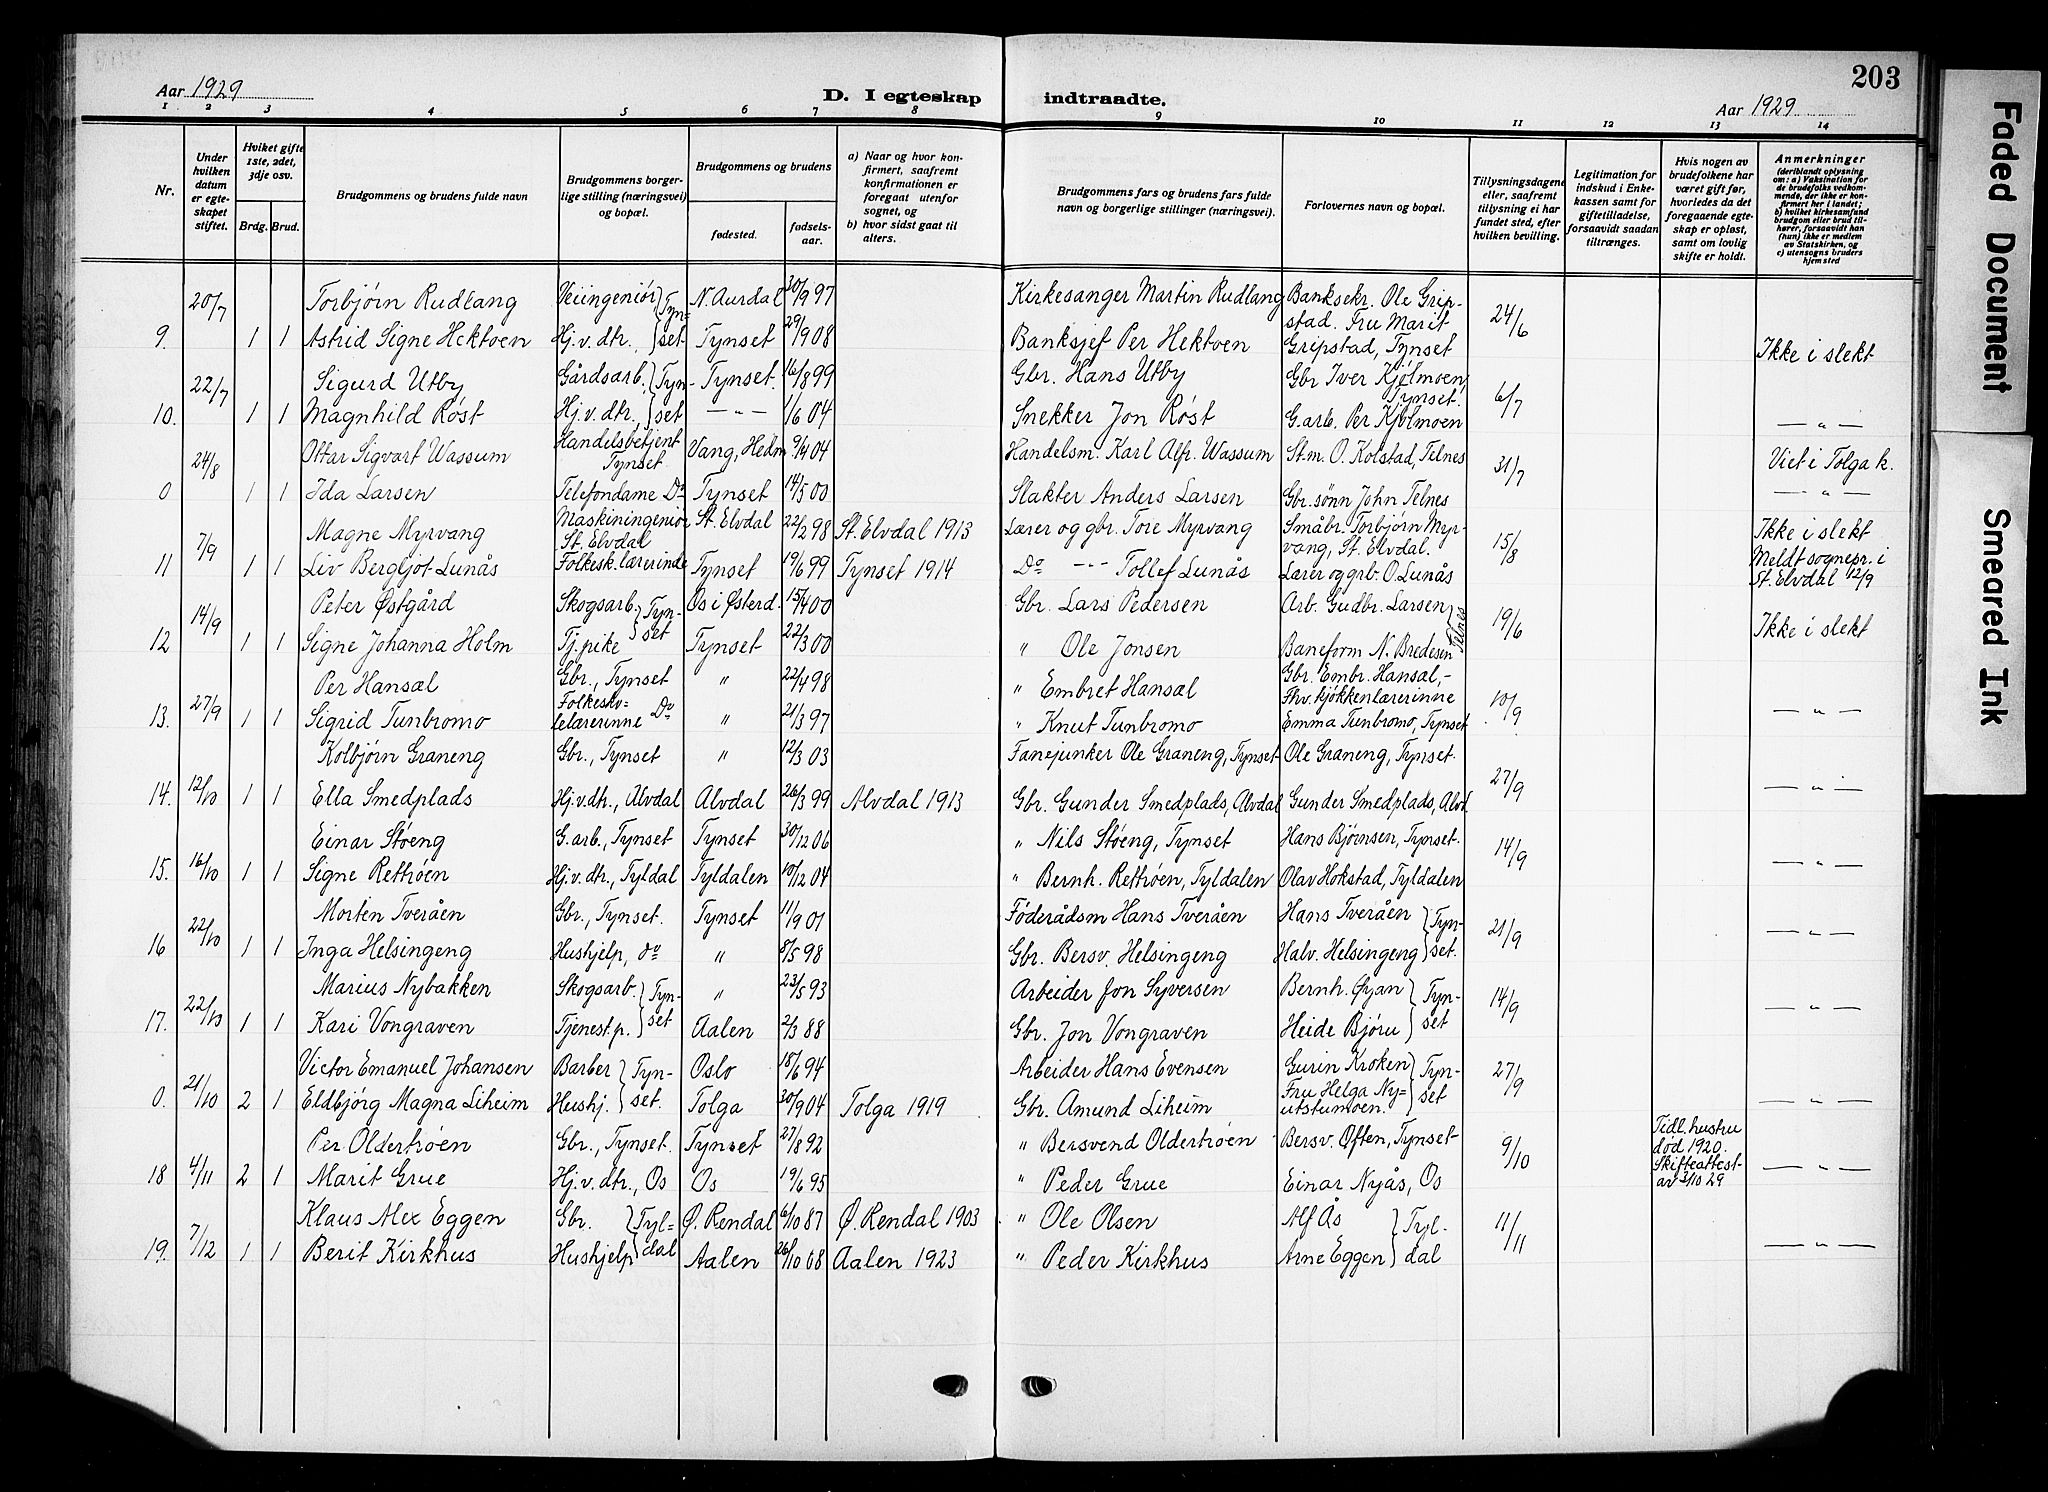 203
Aar 1929
D. I egteskap indtraadte.
Aar 1929
1 2 3 4 5 6 7 8 9 10 11 12 13 14
Nr.
Under hvilken datum er egteskapet stiftet.
Hviket gifte 1ste, 2det, 3dje osv.
Brdg. Brud.
Brudgommens og brudens fulde navn
Brudgommens borgerlige stilling (næringsvei) og bopæl.
Brudgommens og brudens
fødested. fødselsaar.
a) Naar og hvor konfirmert, saafremt konfirmationen er foregaat utenfor sognet, og
b) hvor sidst gaat til alters.
Brudgommens fars og brudens fars fulde navn og borgerlige stillinger (næringsvei).
Forlovernes navn og bopæl.
Tillysningsdagene eller, saafremt tillysning ei har fundet sted, efter hvilken bevilling.
Legitimation for indskud i Enkekassen samt for giftetilladelse, forsaavidt saadan tiltrænges.
Hvis nogen av brudefolkene har været gift før, hvorledes da det foregaaende egteskap er opløst, samt om lovlig skifte er holdt.
Anmerkninger (deriblandt oplysning om: a) Vaksination for de brudefolks vedkommende, der ikke er konfirmert her i landet; b) hvilket kirkesamfund brudgom eller brud tilhører, forsaavidt han (hun) ikke er medlem av Statskirken, og c) utensogns bruders hjemsted
20/7 Torbjørn Rudlang Veiingeniør } Tyn= N. Aurdal 30/9 97 Kirkesanger Martin Rudlang Banksekr. Ole Gripstad. Fru Marit 24/6
9. 1 1 Astrid Signe Hektoen Hj.v.dtr. } set Tynset 29/9 08 Banksjef Per Hektoen Gripstad, Tynset Ikke i slekt
22/7 Sigurd Utby Gårdsarb. } Tyn- Tynset. 16/8 99 Gbr. Hans Utby Gbr Iver Kjølmoen, Tynset. 6/7
10. 1 1 Magnhild Røst Hj.v.dtr. } set — " — 1/6 04 Snekker Jon Røst G.arb. Per Kjølmoen — " —
24/8 Ottar Sigvart Wassum Handelsbetjent Tynset Vang, Hedm 9/4 04 Handelsm. Karl Alfr. Wassum St.m. O. Kolstad, Telnes 31/7 Viet i Tolga k.
0 1 1 Ida Larsen Telefondame Do Tynset 14/5 00 Slakter Anders Larsen Gbr.sønn John Telnes — " —
7/9 Magne Myrvang Maskiningeniør St. Elvdal St. Elvdal 22/2 98 St. Elvdal 1913 Lærer og gbr. Tore Myrvang Småbr. Torbjørn Myrvang, St. Elvdal. 15/8 Ikke i slekt
11 1 1 Liv Bergljot Lunås Folkesk.lærerinde Tynset 19/6 99 Tynset 1914 Do — " — Tollef Lunås Lærer og grb. O. Lunås Meldt sognepr. i St. Elvdal 12/9
14/9 Peter Østgård Skogsarb. } Tyn- Os i Østerd. 15/4 00 Gbr. Lars Pedersen Arb. Gudbr. Larsen } Telnes 19/6
12 1 1 Signe Johanna Holm Tj.pike } set Tynset 22/3 00 " Ole Jonsen Baneform N. Bredesen Ikke i slekt
27/9 Per Hansæl Gbr., Tynset " 22/4 98 " Embret Hansæl Gbr. Embr. Hansæl, – 10/9
13. 1 1 Sigrid Tunbromo Folkeskolelærerinne Do " 21/3 97 " Knut Tunbromo Skv. kjøkkenlærerinne Emma Tunbromo, Tynset — " —
Kolbjørn Graneng Gbr., Tynset " 12/3 03 Fanejunker Ole Graneng, Tynset Ole Graneng, Tynset.
14. 12/10 1 1 Ella Smedplads Hj.v.dtr., Alvdal Alvdal 26/3 99 Alvdal 1913 Gbr. Gunder Smedplads, Alvdal Gunder Smedplads, Alvd. 27/9 — " —
Einar Støeng G.arb., Tynset Tynset 30/12 06 " Nils Støeng, Tynset Hans Bjørnsen, Tynset.
15. 16/10 1 1 Signe Rettrøen Hj.v.dtr., Tyldal Tyldalen 10/12 04 " Bernh. Rettrøen, Tyldalen Olav Hokstad, Tyldalen 14/9 — " —
22/10 Morten Tveråen Gbr., Tynset. Tynset 11/9 01 Føderådsm Hans Tveråen Hans Tveråen } Tyn- 21/9
16 1 1 Inga Helsingeng Hushjelp, do " 8/5 98 Gbr. Bersv. Helsingeng Halv. Helsingeng } set. — " —
22/10 Marius Nybakken Skogsarb. } Tyn- " 23/5 93 Arbeider Jon Syversen Bernh. Øyan } Tyn- 14/9
17. 1 1 Kari Vongraven Tjenest.p. } set Aalen 2/3 88 Gbr. Jon Vongraven Heide Bjøru } set — " —
21/10 Victor Emanuel Johansen Barber } Tyn- Oslo 18/6 94 Arbeider Hans Evensen Gurin Kroken } Tyn- 27/9
0. 2 1 Eldbjørg Magna Liheim Hushj. } set. Tolga 30/9 04 Tolga 1919 Gbr. Amund Liheim Fru Helga Nyutstumoen. } set — " —
Per Oldertrøen Gbr., Tynset. Tynset 27/8 92 " Bersvend Oldertrøen Bersv. Øften, Tynset 9/10 Tidl. hustru død 1920.
18 4/11 2 1 Marit Grue Hj.v.dtr., Os Os 19/6 95 " Peder Grue Einar Nyås, Os Skifteattest av 3/10 29 — " —
7/12 Klaus Alex Eggen Gbr. } Tyl= Ø. Rendal 6/10 87 Ø. Rendal 1903 " Ole Olsen Alf Ås } Tyl- 11/11
19. 1 1 Berit Kirkhus Hushjelp } dal Aalen 26/10 08 Aalen 1923 " Peder Kirkhus Arne Eggen } dal — " —
Faded Document
Smeared Ink